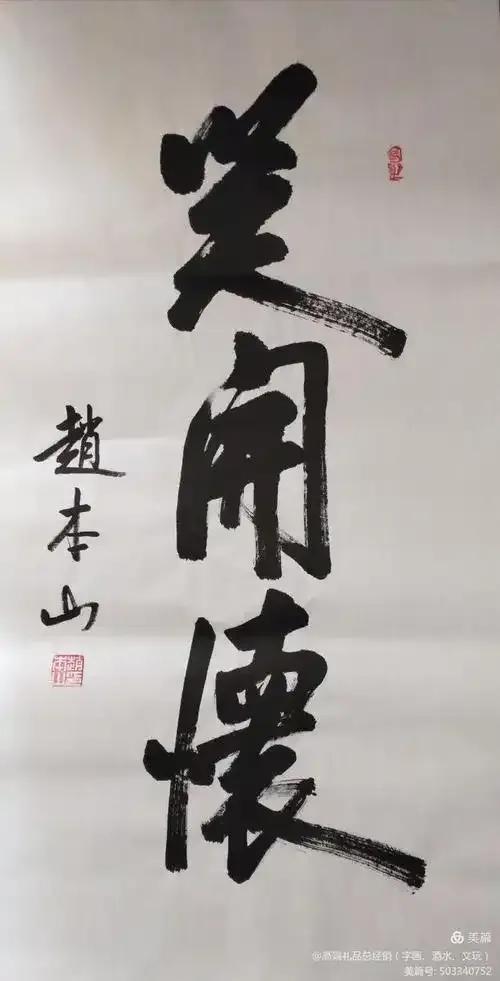 笑開懷
趙本山
美篇
@高端礼品总经销（字画、酒水、文玩）
美篇号: 503340752